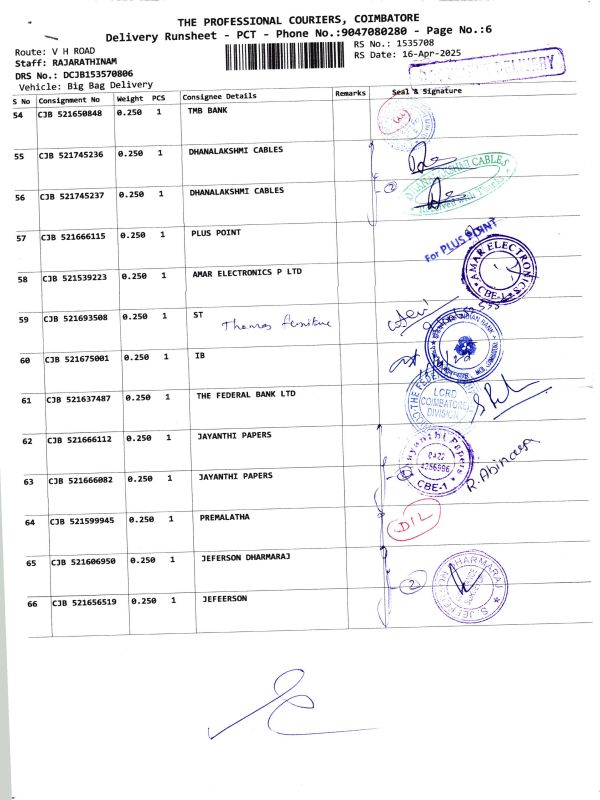 THE PROFESSIONAL COURIERS, COIMBATORE
Delivery Runsheet - PCT - Phone No.:9047080280 - Page No.:6
Route: V H ROAD
RS No.: 1535708
Staff: RAJARATHINAM
RS Date: 16-Apr-2025
DRS No.: DCJB153570806
Vehicle: Big Bag Delivery
DELIVERY
S No Consignment No Weight PCS Consignee Details Remarks Seal & Signature
54 CJB 521650848 0.250 1 TMB BANK
55 CJB 521745236 0.250 1 DHANALAKSHMI CABLES
56 CJB 521745237 0.250 1 DHANALAKSHMI CABLES
2
CABLES
57 CJB 521666115 0.250 1 PLUS POINT
For PLUS POINT
58 CJB 521539223 0.250 1 AMAR ELECTRONICS P LTD
AMAR ELECTRONICS
CBE-1
59 CJB 521693508 0.250 1 ST
Thomas furniture
60 CJB 521675001 0.250 1 IB
INDIAN BANK
61 CJB 521637487 0.250 1 THE FEDERAL BANK LTD
LCRD
COIMBATORE
DIVISION
62 CJB 521666112 0.250 1 JAYANTHI PAPERS
Jayanthi Papers
0422
CBE-1
63 CJB 521666082 0.250 1 JAYANTHI PAPERS
R. Abinaya
64 CJB 521599945 0.250 1 PREMALATHA
D/L
65 CJB 521606950 0.250 1 JEFERSON DHARMARAJ
2
S. JEFFERSON DHARMARAJ
66 CJB 521656519 0.250 1 JEFEERSON